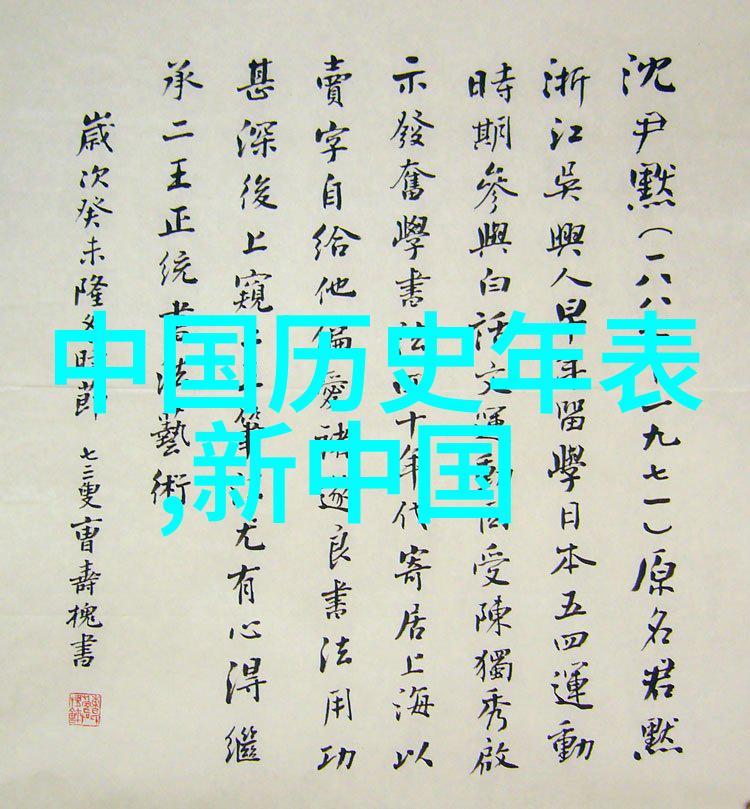 沈尹默(一八八一九七一)原名君默
浙江吳興人早年留學日本五四運動
時期參與白話文運動后受陳獨秀啟
示發奮學書法四十年代寄居上海以
賣字自給他偏愛褚遂良書法用功
甚深後上窺二王筆法尤有心得繼
承二王正統书法藝術
歲次癸未隆冬時節 七三叟曹壽槐書
中国历史年表
,新中国